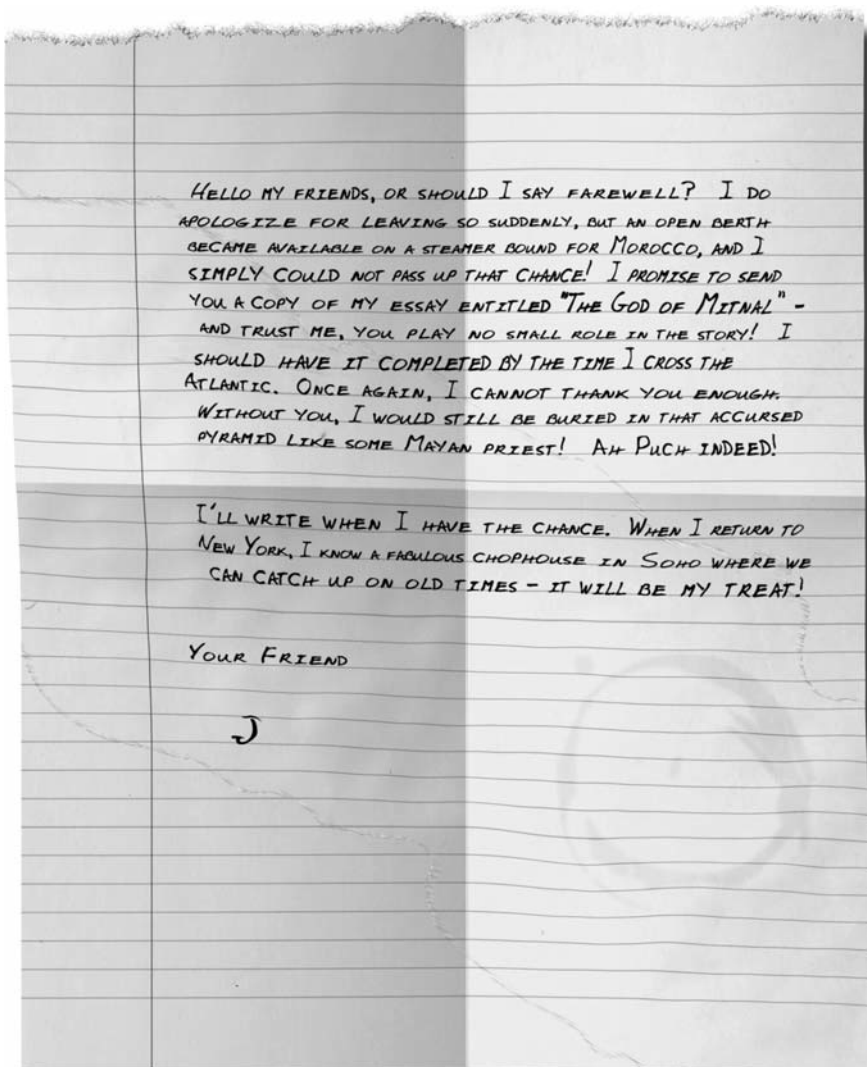 Hello my friends, or should I say farewell? I do
apologize for leaving so suddenly, but an open berth
became available on a steamer bound for Morocco, and I
simply could not pass up that chance! I promise to send
you a copy of my essay entitled "The God of Mitnal" -
and trust me, you play no small role in the story! I
should have it completed by the time I cross the
Atlantic. Once again, I cannot thank you enough.
Without you, I would still be buried in that accursed
pyramid like some Mayan priest! Ah Puch indeed!
I'll write when I have the chance. When I return to
New York, I know a fabulous chophouse in Soho where we
can catch up on old times - it will be my treat!
Your Friend
J